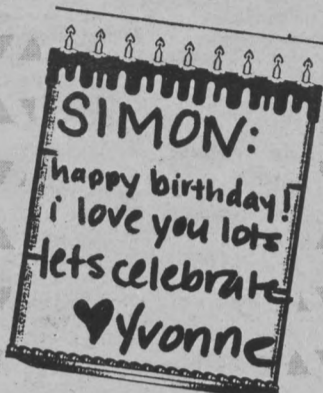 SIMON:
happy birthday!
i love you lots
lets celebrate
♥Yvonne